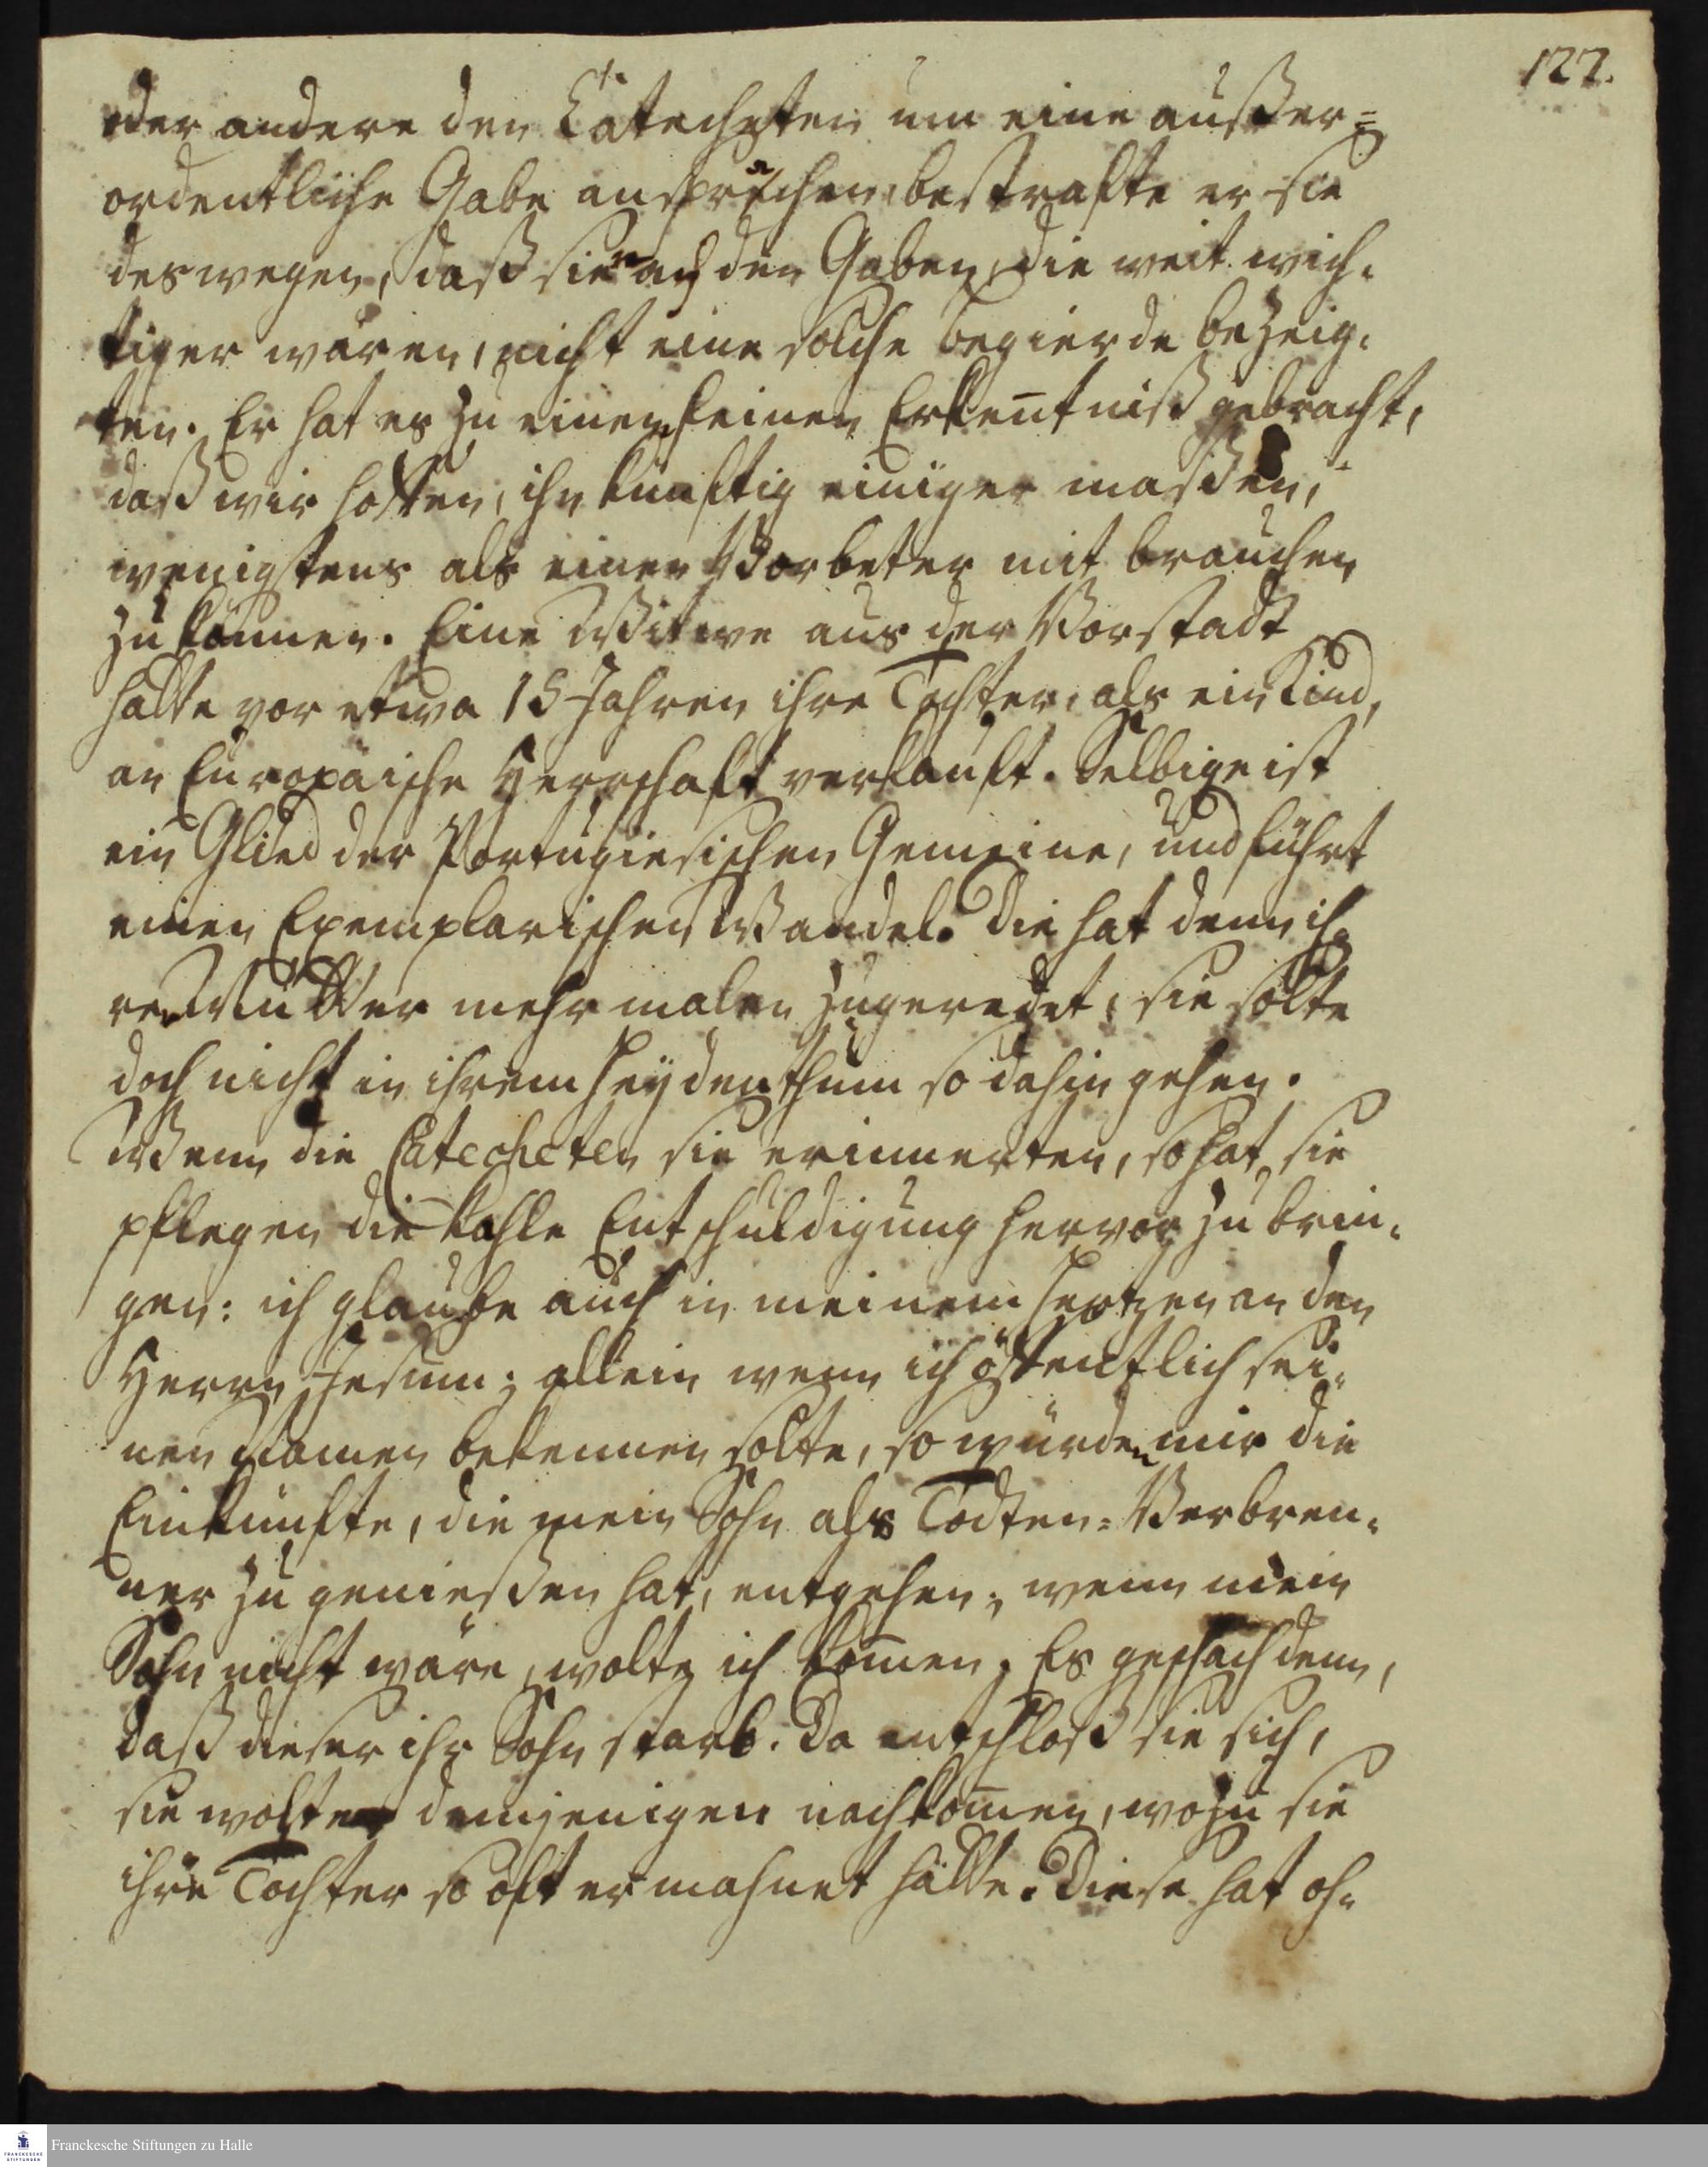 122.
oder andere den Catecheten um eine außer=
ordentliche Gabe ansprachen, bestrafte er sie
deswegen, daß sie nach den Gaben, die weit wich-
tiger wären, nicht eine solche Begierde bezeig-
ten. Er hat es zu einer feinen Erkentniß gebracht,
daß wir hoffen, ihn künftig einiger maßen,
wenigstens als einen Vorbeter mit brauchen
zu können. Eine Witwe aus der Vorstadt
hatte vor etwa 15 Jahren ihre Tochter, als ein Kind,
an Europäische Herrschaft verkauft. Selbige ist
ein Glied der Portugiesischen Gemeine, und führt
einen Exemplarischen Wandel. Die hat denn ih-
rer Mutter mehrmalen zugeredet, sie solte
doch nicht in ihrem Heydenthum so dahin gehen.
Wenn die Catecheten sie erinnerten, so hat sie
pflegen die kahle Entschuldigung hervor zu brin-
gen: ich glaube auch in meinem Hertzen an den
Herrn Jesum; allein wenn ich öffentlich sei-
nen Namen bekennen solte, so würden mir die
Einkünfte, die mein Sohn als Todten=Verbren-
ner zu genießen hat, entgehen; wenn mein
Sohn nicht wäre, wolte ich kommen. Es geschach denn,
daß dieser ihr Sohn starb. Da entschloß sie sich,
sie wolte demjenigen nachkommen, wozu sie
ihre Tochter so oft ermahnet hätte. Diese hat oh-
Franckesche Stiftungen zu Halle
FRANCKESCHE
STIFTUNGEN